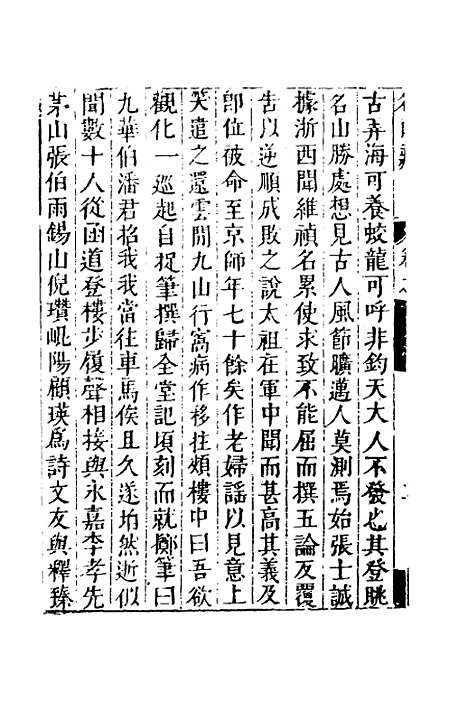 古弄海可養蛟龍可呼非鈞天大人不發也其登眺
名山勝處想見古人風節曠邁人莫測焉始張士誠
據浙西聞維禎名累使求致不能屈而撰五論反覆
告以逆順成敗之說太祖在軍中聞而甚高其義及
卽位被命至京師年七十餘矣作老婦謠以見意上
笑遣之還雲間九山行窩病作移拄頰樓中曰吾欲
觀化一巡起自捉筆撰歸全堂記頃刻而就擲筆曰
九華伯潘君招我我當往車馬俟且久遂坦然逝似
聞數十人從函道登樓步履聲相接與永嘉李孝先
茅山張伯雨錫山倪瓚崐陽顧瑛爲詩文友與釋臻